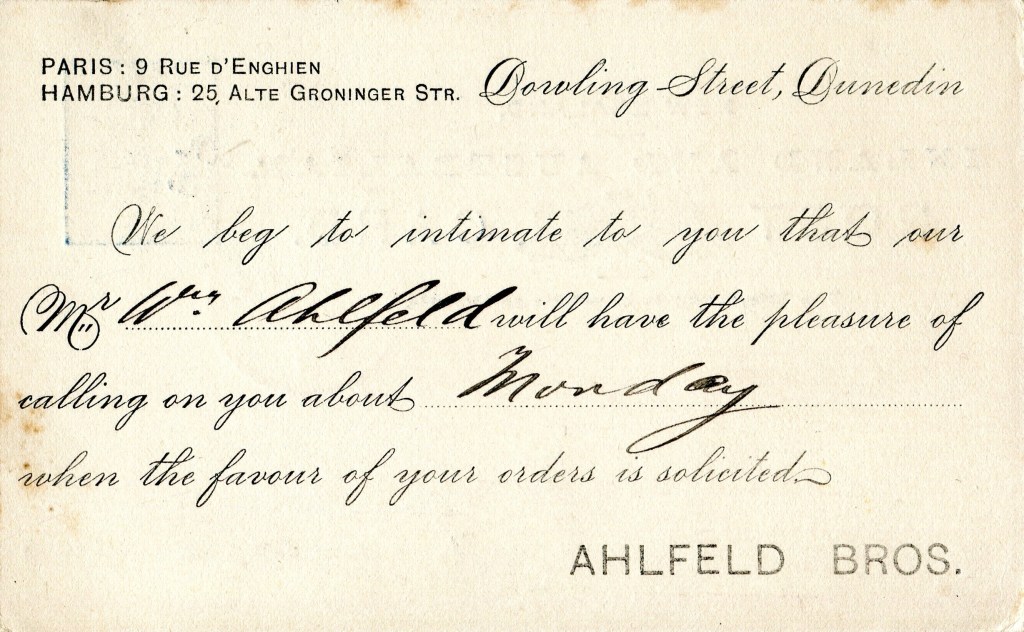 PARIS: 9 RUE D'ENGHIEN
HAMBURG: 25, ALTE GRONINGER STR.
Dowling Street, Dunedin
We beg to intimate to you that our
Mr Wm Ahlfeld will have the pleasure of
calling on you about Monday
when the favour of your orders is solicited.
AHLFELD BROS.